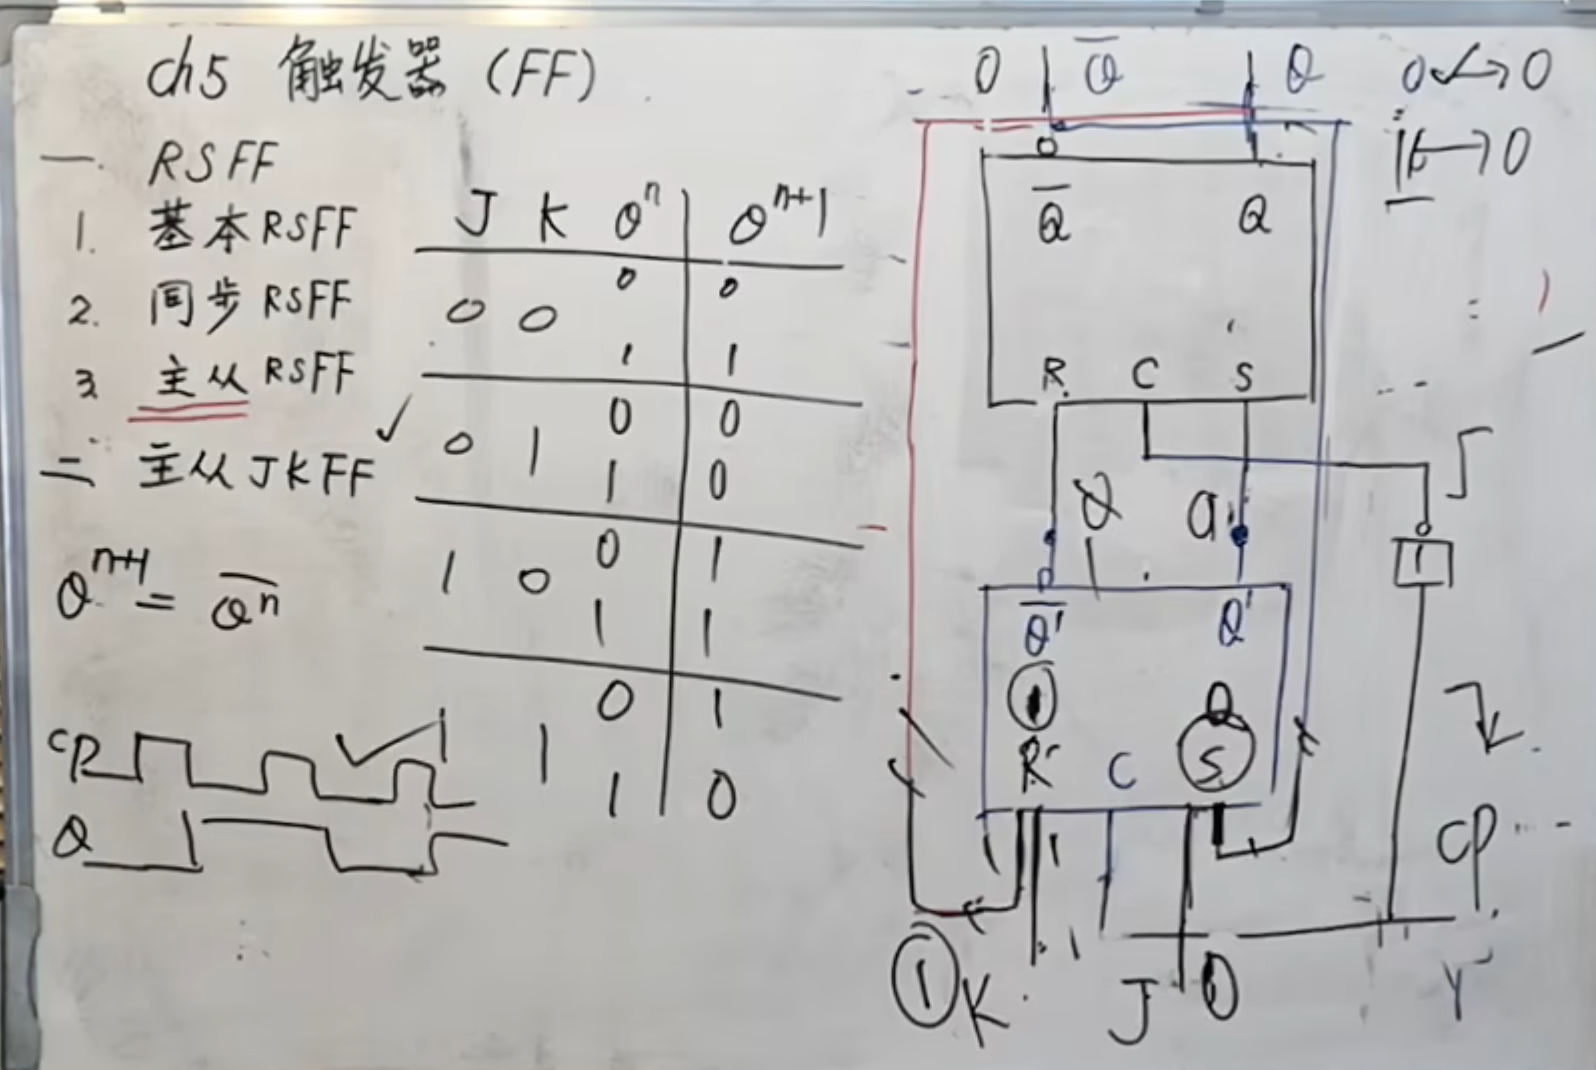 ch5 触发器 (FF)
一. RSFF
1. 基本RSFF
2. 同步RSFF
3. 主从RSFF
二 主从JKFF ✓
Qⁿ⁺¹ = Q̅ⁿ
CP
Q
J K Qⁿ Qⁿ⁺¹
0 0
0 0
1 1
0 0
0 1
1 0
0 1
1 0
1 1
0 1
1 1
1 0
0 Q̅ Q 0↔0
1↔0
Q̅ Q
R C S
Q
Q̅' Q'
1 0
R C S
1 1
CP
1
① K J 0